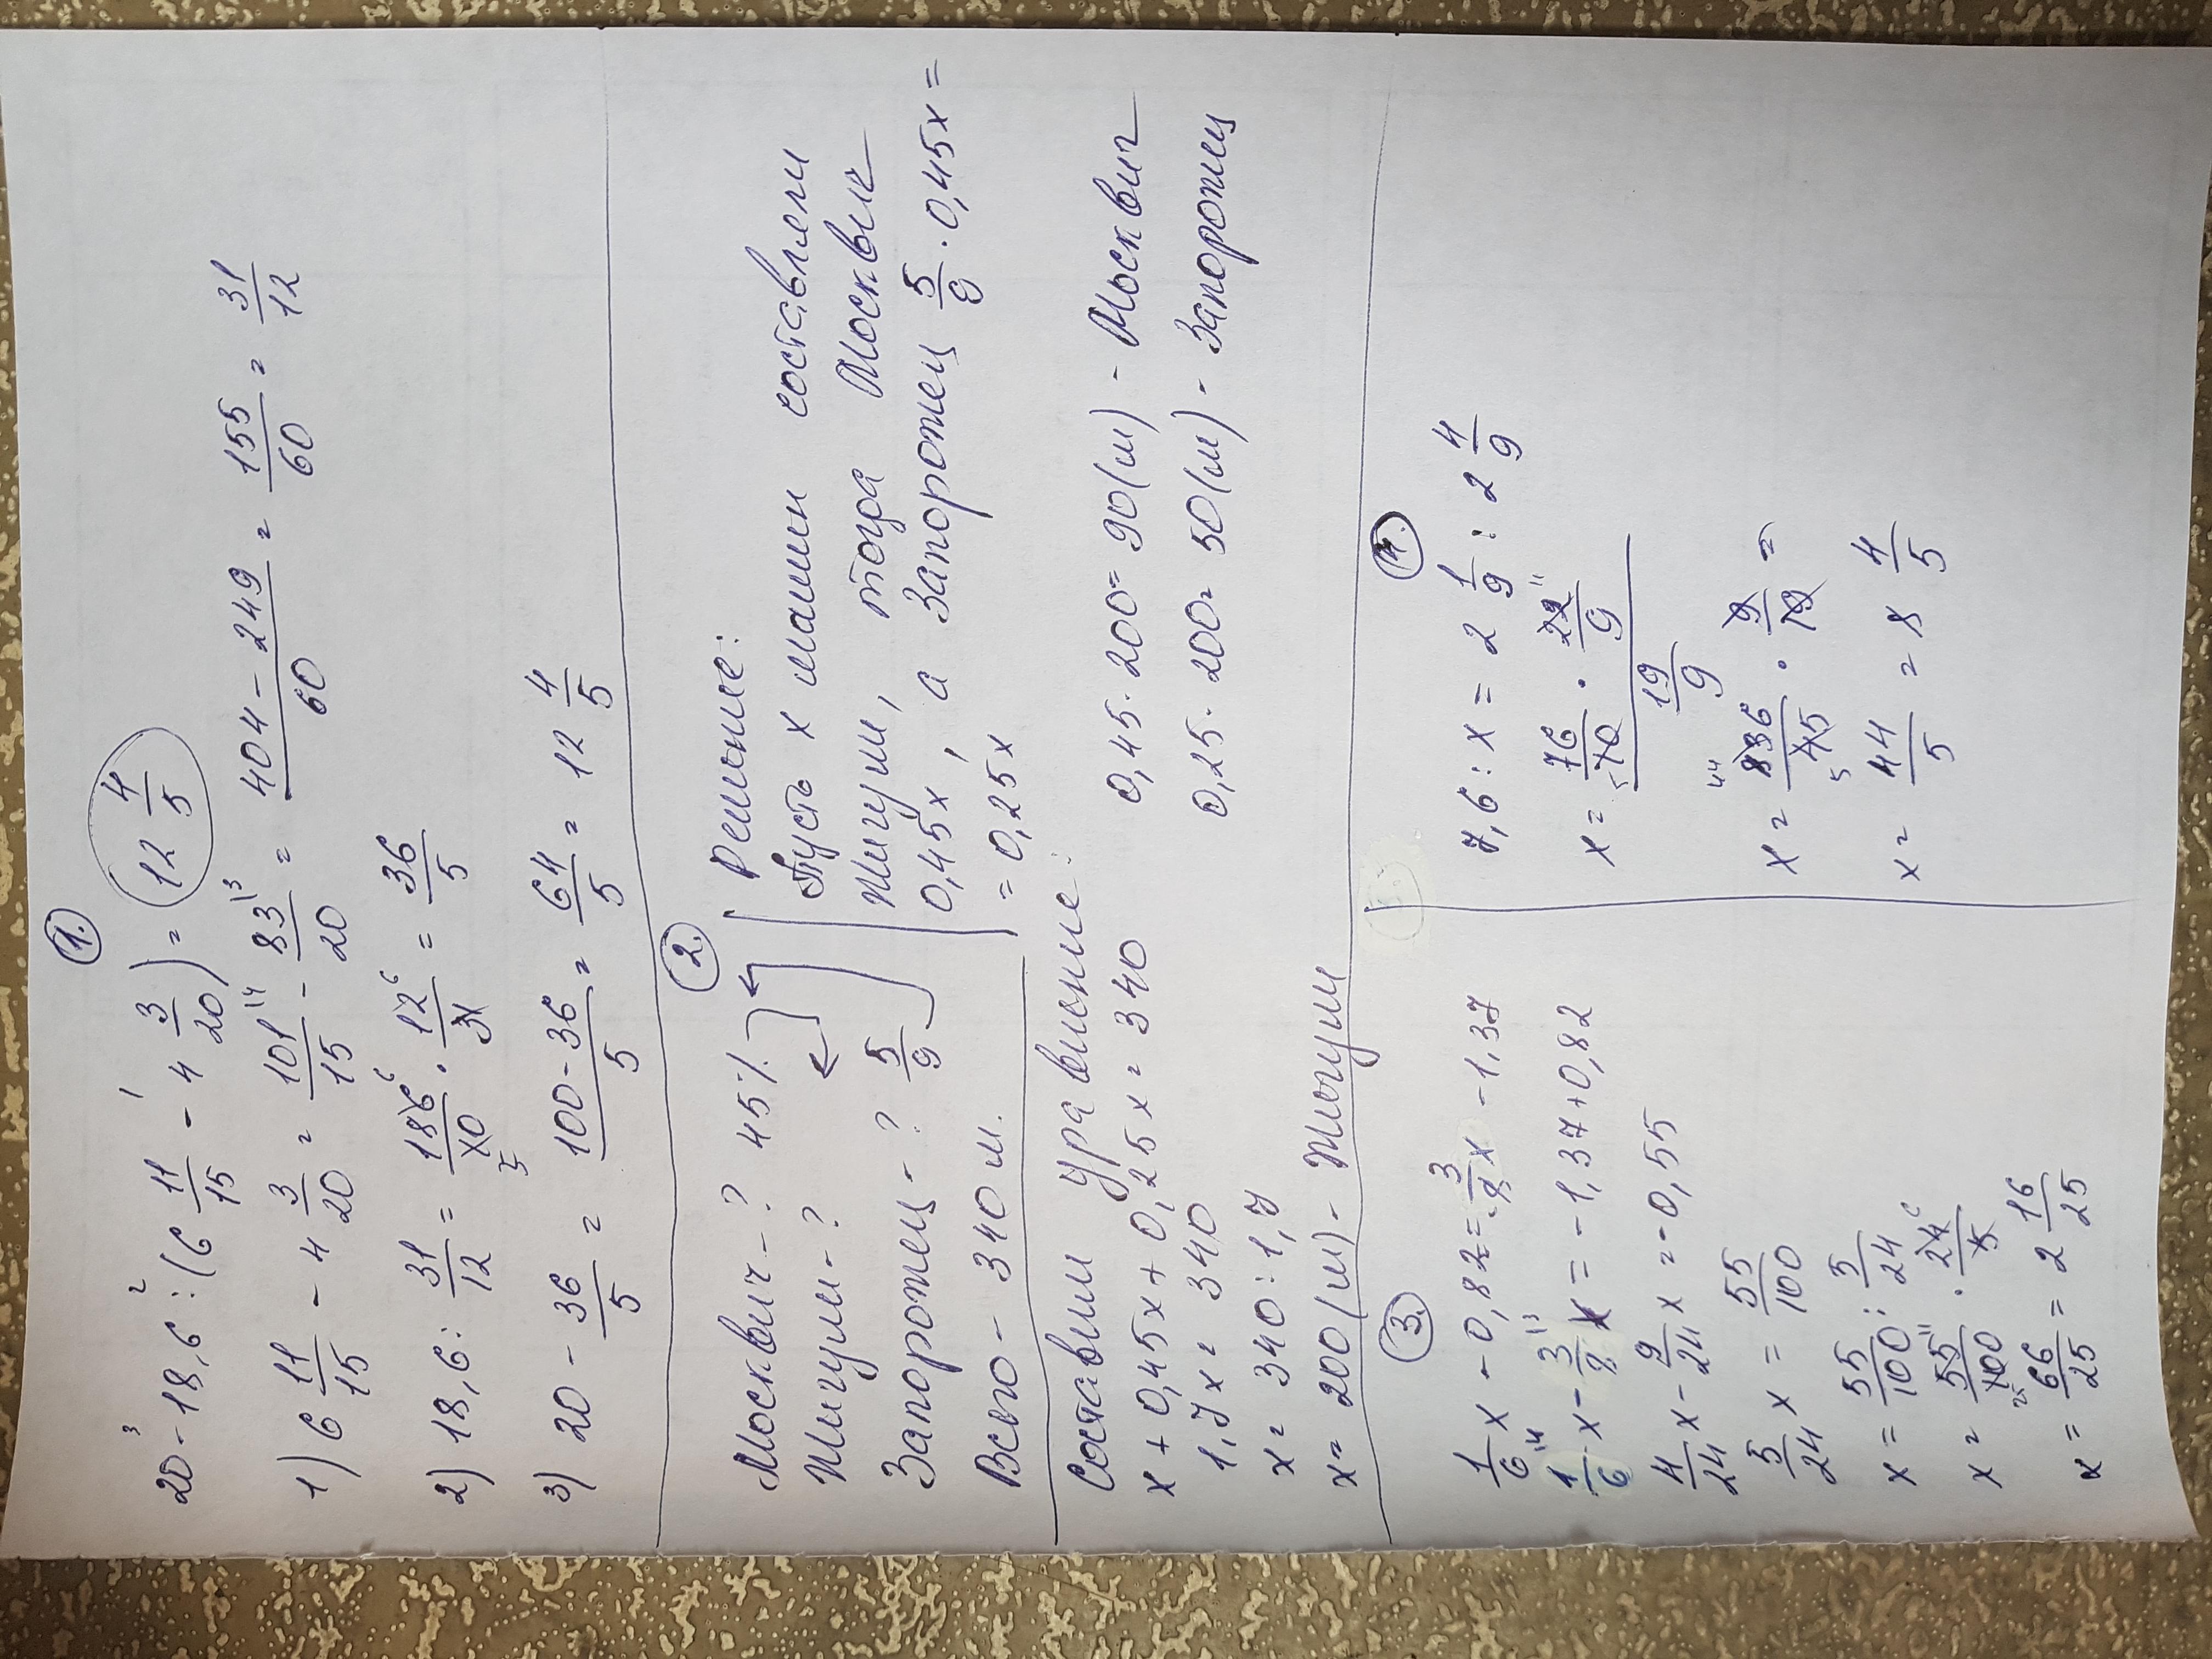 1.
20 - 18,6 : (6 11/15 - 4 3/20) = 12 4/5
1) 6 11/15 - 4 3/20 = 101/15 - 83/20 = (404 - 249)/60 = 155/60 = 31/12
2) 18,6 : 31/12 = 186/10 · 12/31 = 36/5
3) 20 - 36/5 = (100 - 36)/5 = 64/5 = 12 4/5
2.
Москвич - ? 45%
Жигули - ?
Запорожец - ? 5/9
Всего - 340 м.
Решение:
Пусть x машин составляем
Жигули, тогда Москвич
0,45x, а Запорожец 5/9 · 0,45x =
= 0,25x
Составим уравнение:
x + 0,45x + 0,25x = 340
1,7x = 340
x = 340 : 1,7
x = 200 (м) - Жигули
0,45 · 200 = 90 (м) - Москвич
0,25 · 200 = 50 (м) - Запорожец
3.
1/6 x - 0,82 = 3/8 x - 1,37
1/6 x - 3/8 x = -1,37 + 0,82
4/24 x - 9/24 x = -0,55
5/24 x = 55/100
x = 55/100 : 5/24
x = 55/100 · 24/5
x = 66/25 = 2 16/25
4.
7,6 : x = 2 1/9 : 2 4/9
x = (76/10 · 22/9)/(19/9)
x = 836/45 · 9/19 =
x = 44/5 = 8 4/5